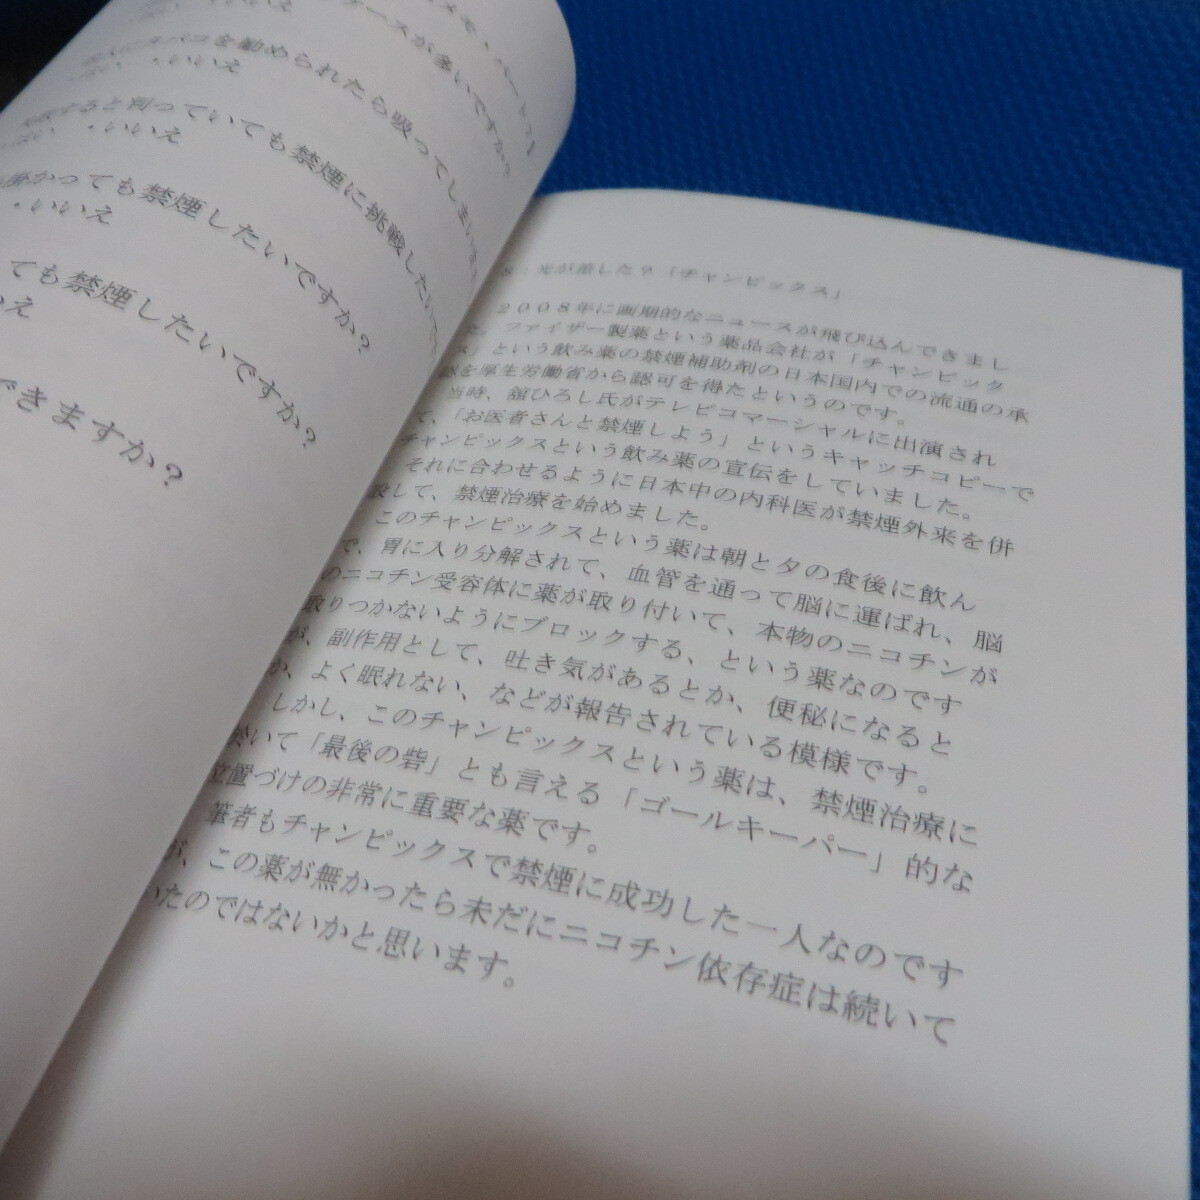 スモ・パート7】
ケースが多いですか？
タバコを勧められたら吸ってしまいます
・いいえ
すると判っていても禁煙に挑戦したいで
・いいえ
掛かっても禁煙したいですか？
・いいえ
ても禁煙したいですか？
いえ
できますか？
8：光が差した？「チャンピックス」
２００８年に画期的なニュースが飛び込んできまし
た。ファイザー製薬という薬品会社が「チャンピック
ス」という飲み薬の禁煙補助剤の日本国内での流通の承
認を厚生労働省から認可を得たというのです。
当時、舘ひろし氏がテレビコマーシャルに出演され
て、「お医者さんと禁煙しよう」というキャッチコピーで
チャンピックスという飲み薬の宣伝をしていました。
それに合わせるように日本中の内科医が禁煙外来を併
設して、禁煙治療を始めました。
このチャンピックスという薬は朝と夕の食後に飲ん
で、胃に入り分解されて、血管を通って脳に運ばれ、脳
のニコチン受容体に薬が取り付いて、本物のニコチンが
取りつかないようにブロックする、という薬なのです
が、副作用として、吐き気があるとか、便秘になると
か、よく眠れない、などが報告されている模様です。
しかし、このチャンピックスという薬は、禁煙治療に
於いて「最後の砦」とも言える「ゴールキーパー」的な
位置づけの非常に重要な薬です。
筆者もチャンピックスで禁煙に成功した一人なのです
が、この薬が無かったら未だにニコチン依存症は続いて
いたのではないかと思います。